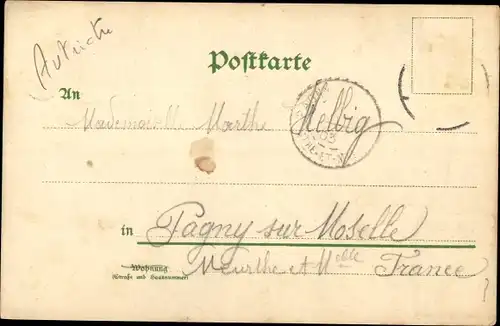 Autriche
Postkarte
An
Mademoiselle Marthe Helbig
in Pagny sur Moselle
Wohnung Meurthe et Mlle France
(Straße und Hausnummer)